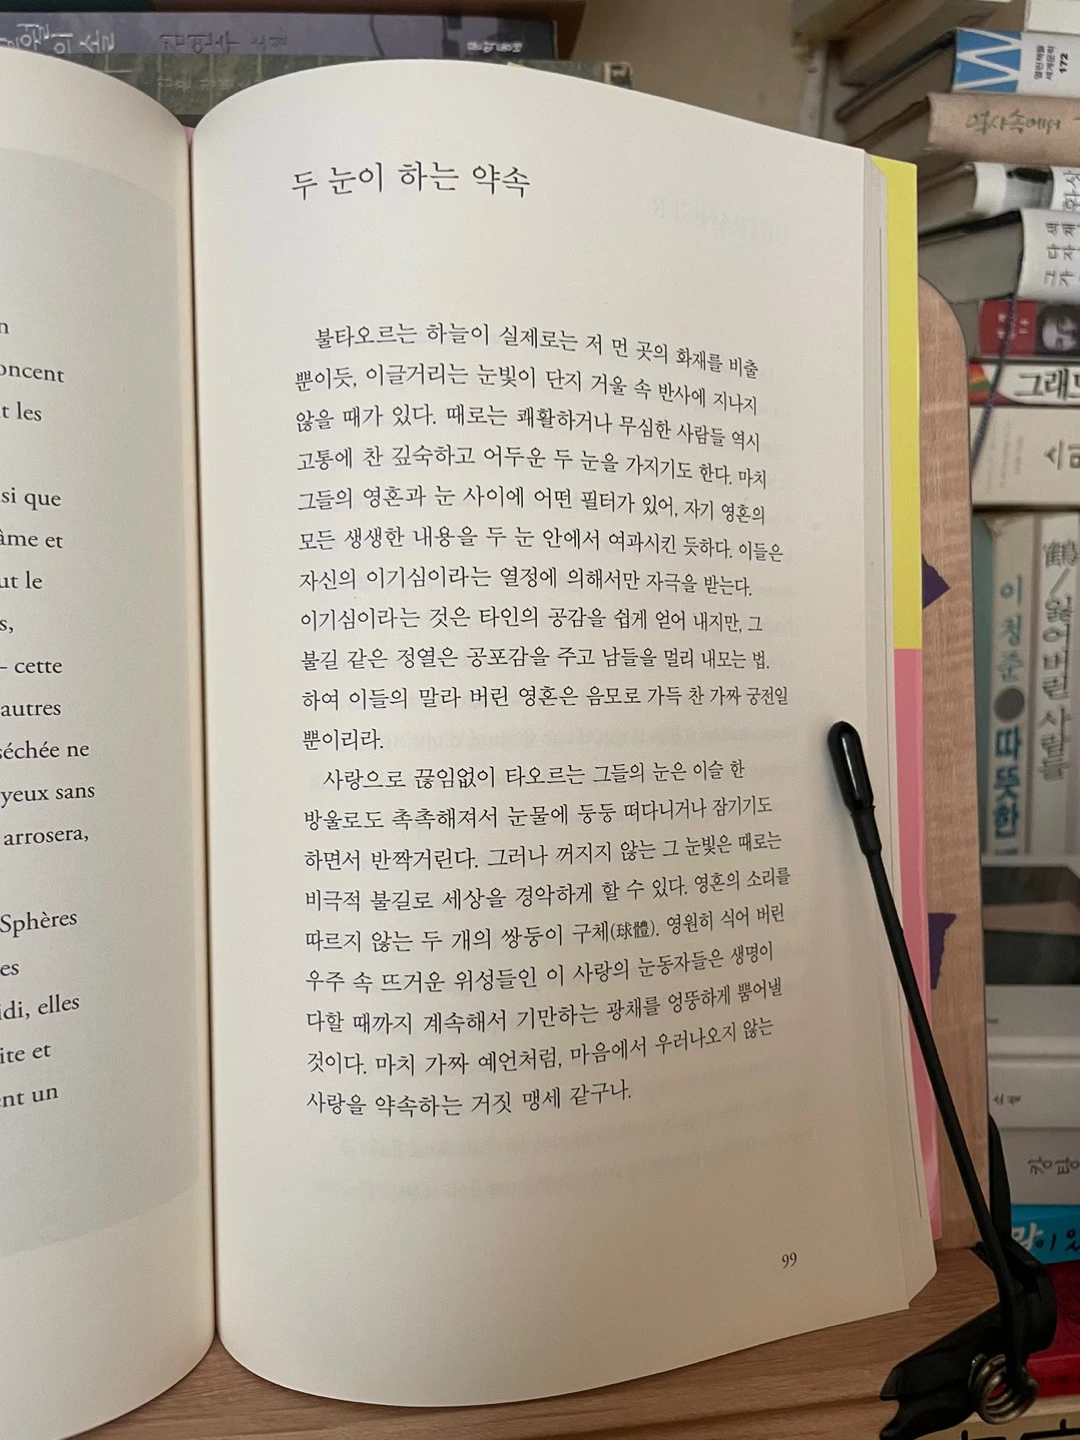 김연수 소설
n
oncent
t les
si que
âme et
ut le
s,
– cette
autres
séchée ne
yeux sans
arrosera,
Sphères
es
idi, elles
ite et
ent un
두 눈이 하는 약속
불타오르는 하늘이 실제로는 저 먼 곳의 화재를 비출
뿐이듯, 이글거리는 눈빛이 단지 거울 속 반사에 지나지
않을 때가 있다. 때로는 쾌활하거나 무심한 사람들 역시
고통에 찬 깊숙하고 어두운 두 눈을 가지기도 한다. 마치
그들의 영혼과 눈 사이에 어떤 필터가 있어, 자기 영혼의
모든 생생한 내용을 두 눈 안에서 여과시킨 듯하다. 이들은
자신의 이기심이라는 열정에 의해서만 자극을 받는다.
이기심이라는 것은 타인의 공감을 쉽게 얻어 내지만, 그
불길 같은 정열은 공포감을 주고 남들을 멀리 내모는 법.
하여 이들의 말라 버린 영혼은 음모로 가득 찬 가짜 궁전일
뿐이리라.
사랑으로 끊임없이 타오르는 그들의 눈은 이슬 한
방울로도 촉촉해져서 눈물에 둥둥 떠다니거나 잠기기도
하면서 반짝거린다. 그러나 꺼지지 않는 그 눈빛은 때로는
비극적 불길로 세상을 경악하게 할 수 있다. 영혼의 소리를
따르지 않는 두 개의 쌍둥이 구체(球體). 영원히 식어 버린
우주 속 뜨거운 위성들인 이 사랑의 눈동자들은 생명이
다할 때까지 계속해서 기만하는 광채를 엉뚱하게 뿜어낼
것이다. 마치 가짜 예언처럼, 마음에서 우러나오지 않는
사랑을 약속하는 거짓 맹세 같구나.
99
열린책들
세계문학
172
역사속에서
그래드
이청준
따뜻한
잃어버린 사람들
소설
캉탕